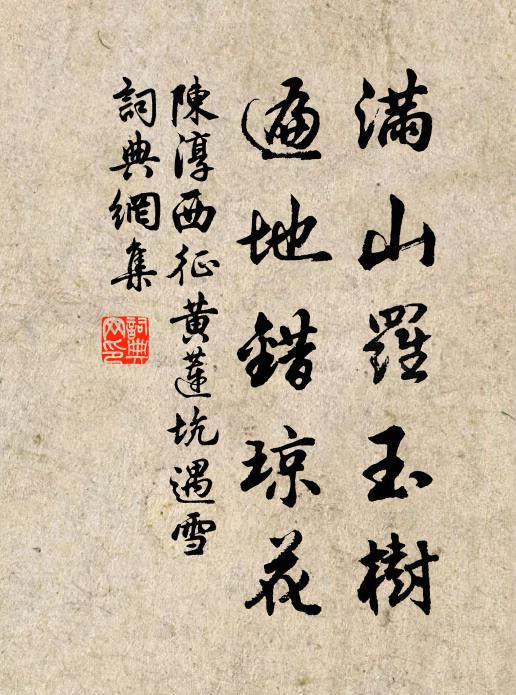 滿山羅玉樹
遍地錯琼花
陳淳西征黃蓮坑遇雪
詞典網集
詞典
网印